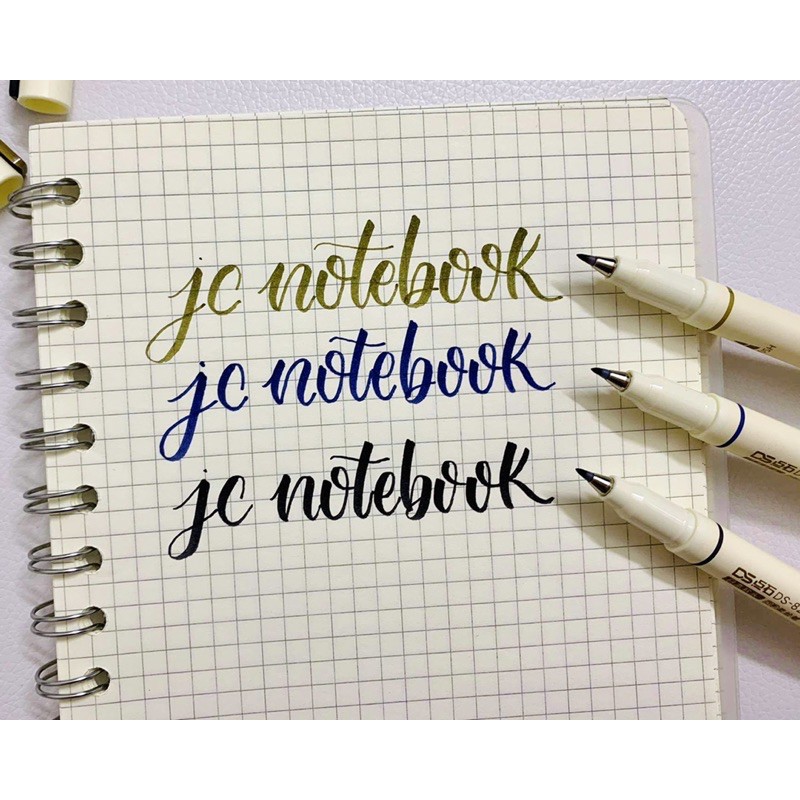 jc notebook
jc notebook
jc notebook
DS
DS DS-8